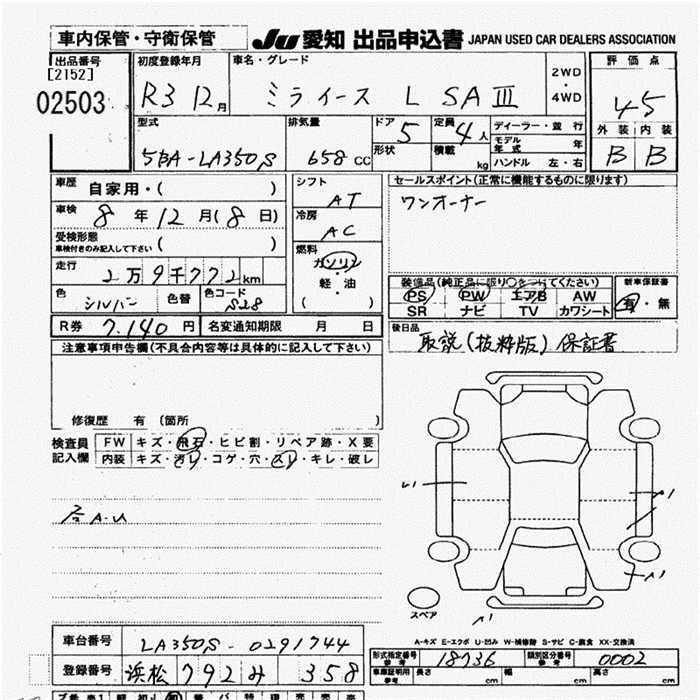 車内保管・守衛保管
JU 愛知 出品申込書 JAPAN USED CAR DEALERS ASSOCIATION
出品番号
[2152]
02503
初度登録年月
R3 12月
車名・グレード
ミライース L SAⅢ
2WD
・
4WD
評価点
4.5
外装 内装
B B
型式
5BA-LA350S
排気量
658 CC
ドア
5
形状
定員
4人
積載
kg
ディーラー・並行
モデル年式 年
ハンドル 左・右
車歴 自家用・( )
車検 8年12月(8日)
受検形態
車検付きのみ記入して下さい ( )
走行 2万9千772km
色 シルバー 色替 色コード S28
R券 7,140円 名変通知期限 月 日
シフト
AT
冷房
AC
燃料
ガソリン
・
軽・油
( )
セールスポイント(正常に機能するものに限ります)
ワンオーナー
装備品(純正品に限り○をつけてください)
PS PW エアB AW
SR ナビ TV カワシート
新車保証書
有・無
後日品
取説(抜粋版) 保証書
注意事項申告欄(不具合内容等は具体的に記入して下さい)
修復歴 有 (箇所 )
検査員
記入欄
FW キズ・飛石・ヒビ割・リペア跡・X要
内装 キズ・汚レ・コゲ・穴・スリ・キレ・破レ
A・U
スペア
A-キズ E-エクボ U-凹み W-補修跡 S-サビ C-腐食 XX-交換済
車台番号 LA350S-0291744
登録番号 浜松 792 み 358
形式指定番号
参考
18736
類別区分番号
参考
0002
車庫証明用
参考
長さ cm 幅 cm 高さ cm